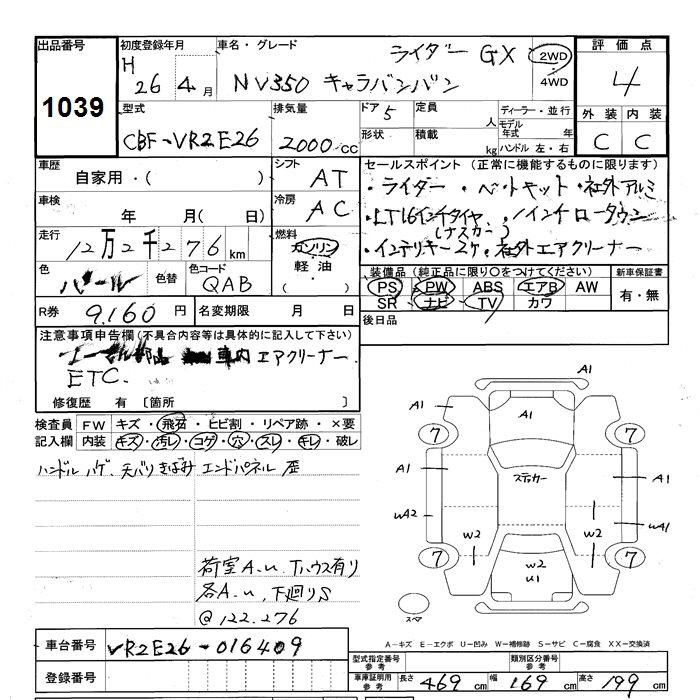 出品番号 初度登録年月 車名・グレード ライダー GX 2WD 評価点
1039 H 26 4月 NV350 キャラバンバン 4WD 4
型式 排気量 ドア 5 定員 人 ディーラー・並行 外装 内装
CBF-VR2E26 2000cc 形状 積載 kg モデル年式 年 C C
ハンドル 左・右
車歴 自家用・( ) シフト AT セールスポイント (正常に機能するものに限ります)
車検 年 月(日) 冷房 AC ・ライダー・ベットキット・社外アルミ
・LT16インチタイヤ ・1インチローダウン
走行 12万2千276km 燃料 ガソリン
・インテリキー2ケ・社外エアクリーナー
軽油・( )
色 パール 色替 色コード QAB 装備品 (純正品に限り〇をつけてください) 新車保証書
PS PW ABS エアB AW 有・無
R券 9,160円 名変期限 月 日 SR ナビ TV カワ
後日品
注意事項申告欄 (不具合内容等は具体的に記入して下さい)
車内 エアクリーナー
ETC.
修復歴 有 〔箇所 〕
検査員 FW キズ・飛石・ヒビ割・リペア跡・×要
記入欄 内装 キズ・汚レ・コゲ・穴・スレ・キレ・破レ
ハンドルハゲ 天バリきばみ エンドパネル 歪
荷室A.u, Tハウス有り
各A.u, 下廻りS
@122.276
A1
A1 A1
7 7
A1 ステッカー A1
uA2 uA1
w2 w2
7 w2 7
u1
スペア
A-キズ E-エクボ U-凹み W-補修跡 S-サビ C-腐食 XX-交換済
車台番号 VR2E26-016409
登録番号
型式指定番号 参考 類別区分番号 参考
車庫証明用 参考 長さ 469cm 幅 169cm 高さ 199cm